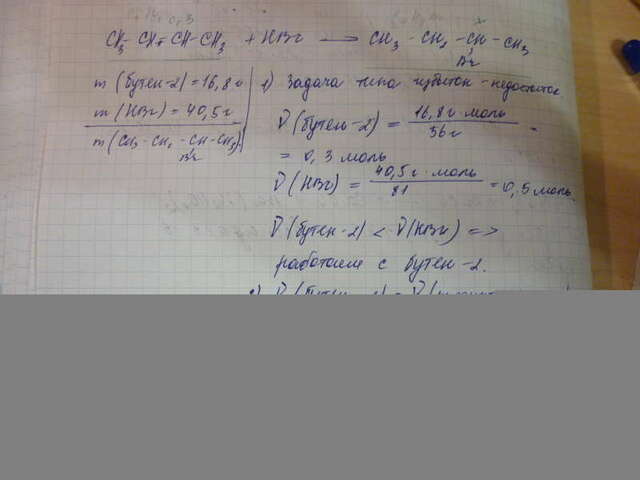 CH₃ - CH = CH - CH₃ + HBr → CH₃ - CH₂ - CH - CH₃
Br
m (бутен-2) = 16,8 г
m (HBr) = 40,5 г
m (CH₃ - CH₂ - CH - CH₃)
Br
1) Задача типа избыток - недостаток
ν (бутен-2) = 16,8 г · моль / 36 г =
= 0,3 моль
ν (HBr) = 40,5 г · моль / 81 = 0,5 моль.
ν (бутен-2) < ν (HBr) =>
работаем с бутен-2.